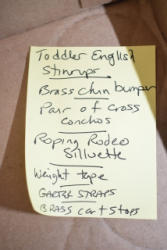 Toddler English
Stirrups
Brass chin bumper
Pair of cross
conchos
Roping Rodeo
Silluette
Weight tape
GAITER STRAPS
BRASS cart stops